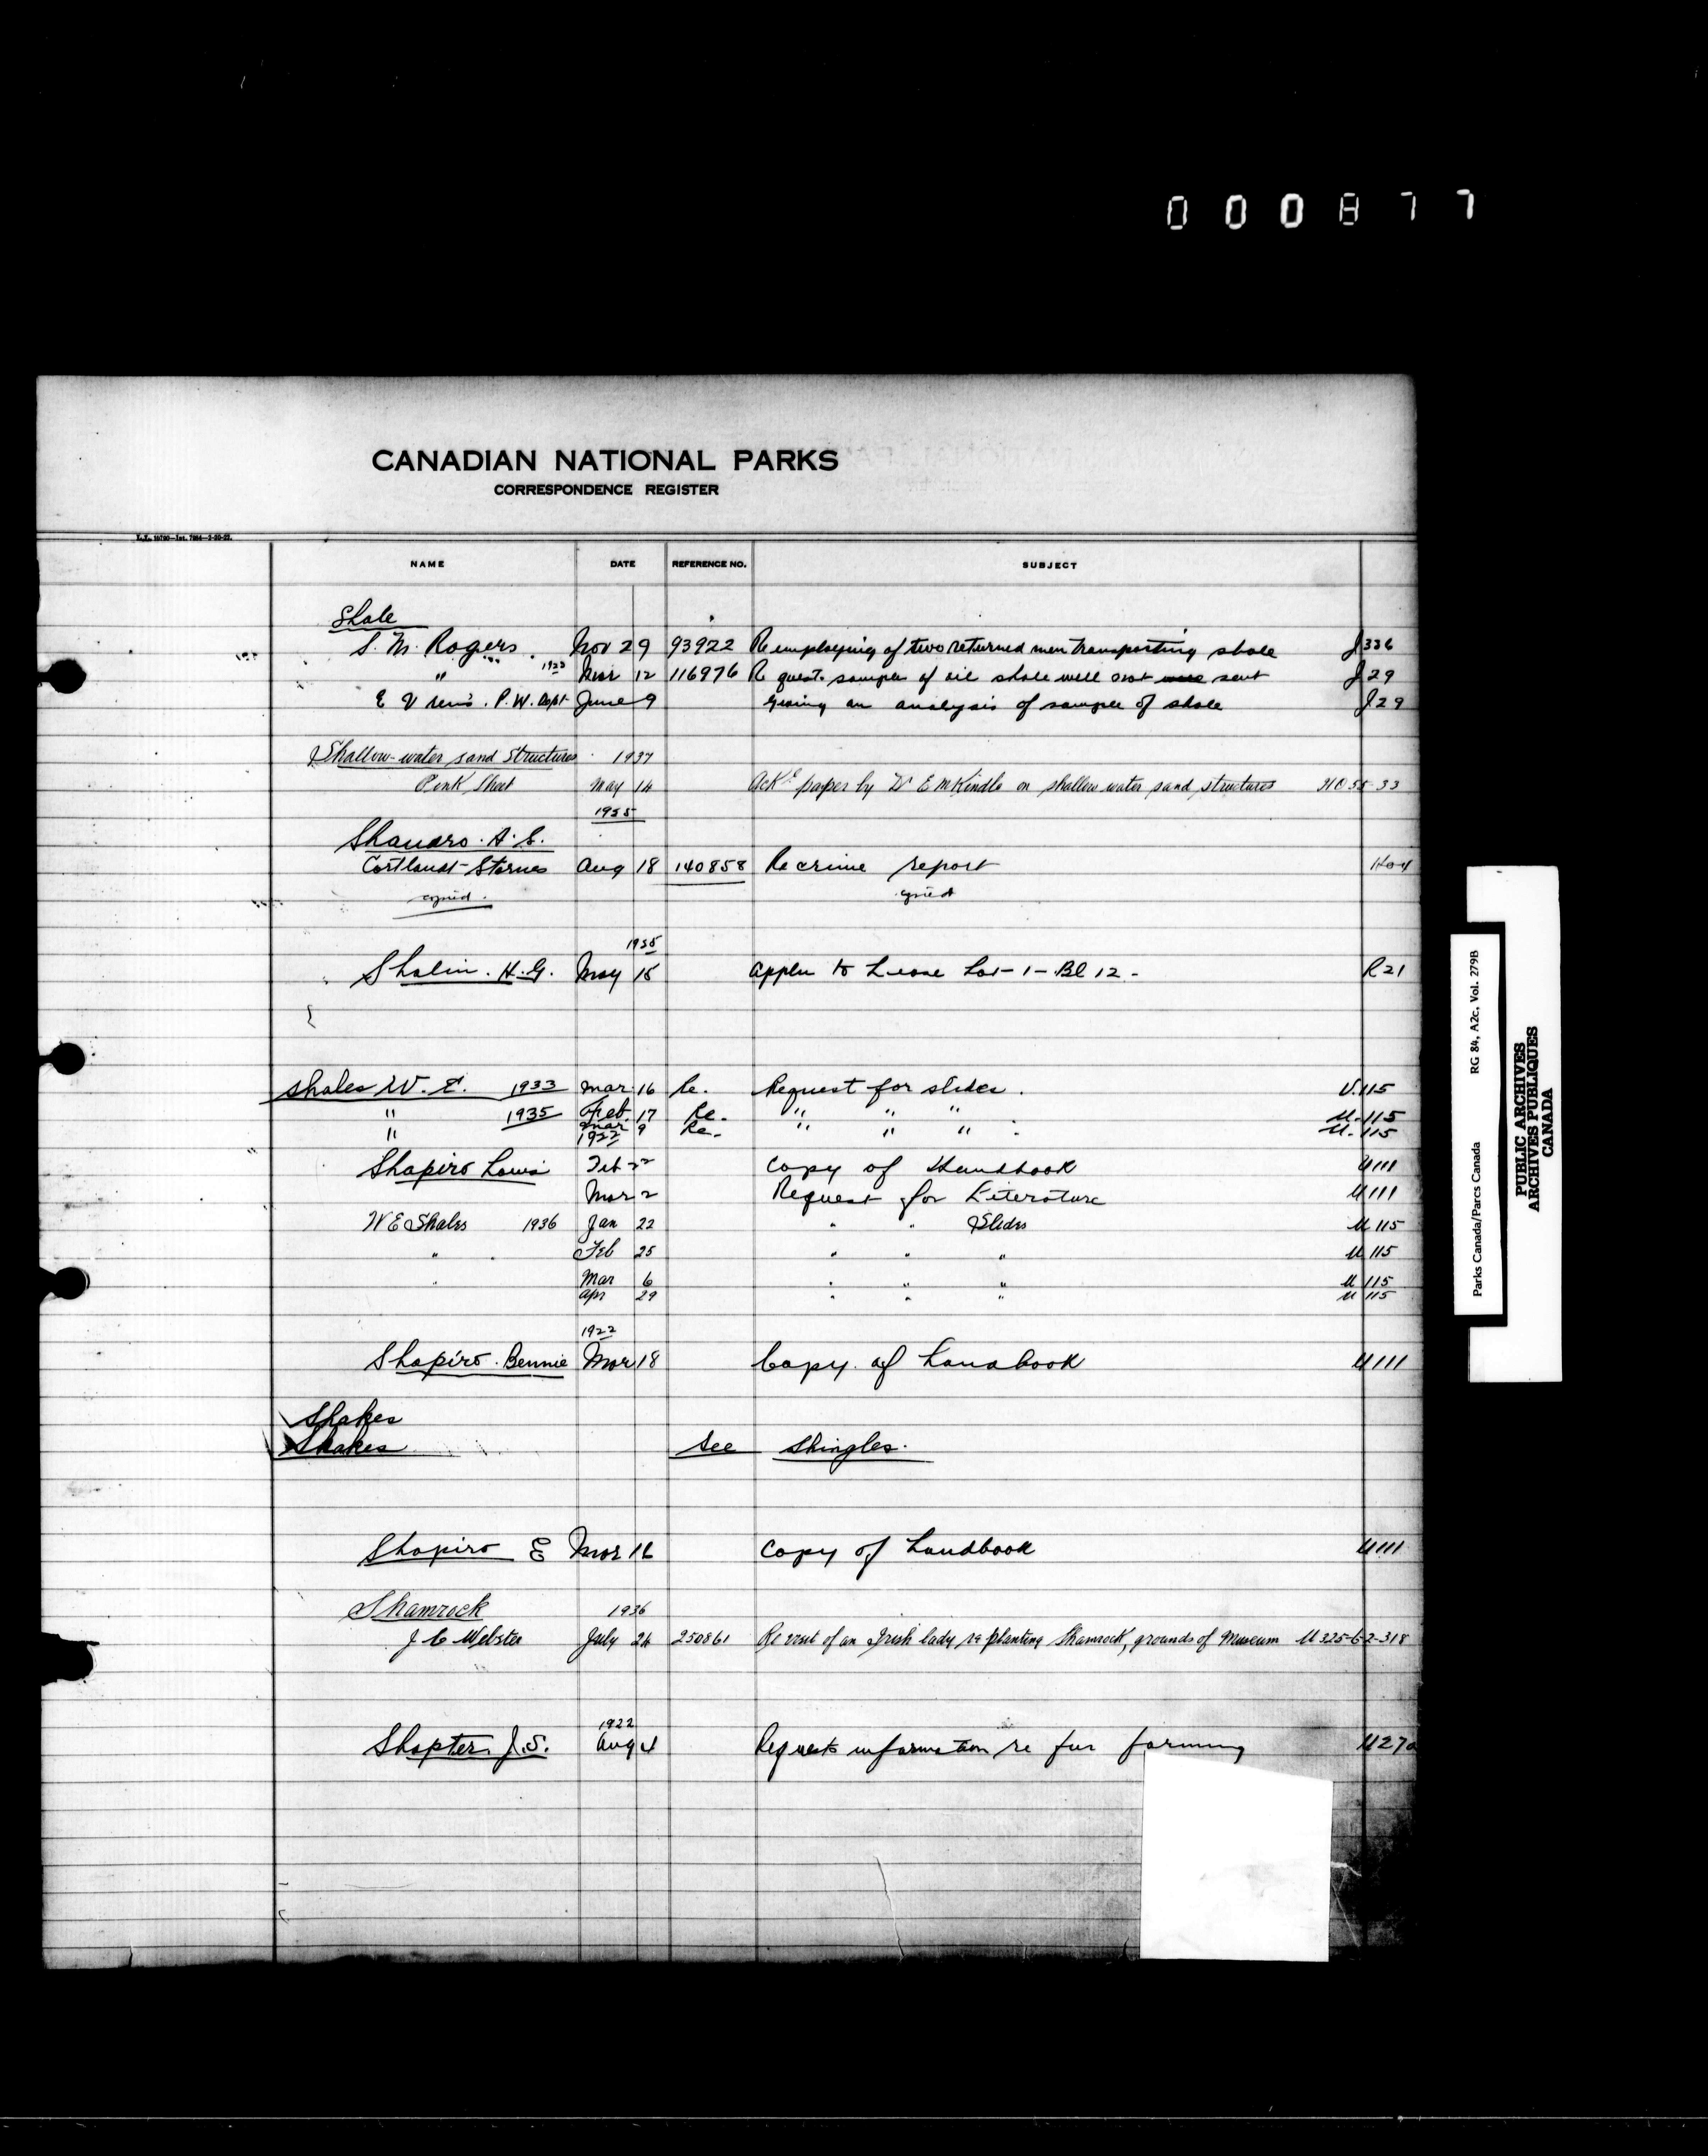 000877
CANADIAN NATIONAL PARKS
CORRESPONDENCE REGISTER
NAME DATE REFERENCE NO. SUBJECT
Shale
S. M. Rogers. Nov 29 93922 Re employing of two returned men transporting shale J 336
" 1923 Mar 12 116976 Re quest. sample of oil shale well sent J 29
P.W. Dept June 9 Giving an analysis of sample of shale J 29
Shallow-water sand Structures 1937
Pink Sheet May 14 Ack'g paper by Dr E M Kindle on shallow water sand structures
1925
Shandro. A. S.
Cortlandt Starnes Aug 18 140858 Re crime report
copied. copied
1925
Shalin. H. G. May 15 Appln to Lease Lot-1-Bl 12- R 21
Shales W. E. 1933 Mar 16 Re. Request for slides. U.115
" 1935 Feb. 17 Re. " " " U.115
" Mar 9 Re. " " " U.115
1922
Shapiro Louis Feb 22 Copy of Handbook U111
Mar 2 Request for Literature U111
W E Shales 1936 Jan 22 " " Slides U 115
" " Feb 25 " " " U 115
" Mar 6 " " " U 115
Apr 29 " " " U 115
1922
Shapiro. Bennie Mar 18 Copy of handbook U111
Shakes
Shakes See Shingles.
Shapiro E Mar 16 Copy of handbook U111
Shamrock 1936
J C Webster July 24 250861 Re visit of an Irish lady re planting Shamrock, grounds of Museum U 325-6-2-318
1922
Shapter J. S. Aug 4 Requests information re fur farming U 27
Parks Canada/Parcs Canada RG 84, A2c, Vol. 279B
PUBLIC ARCHIVES
ARCHIVES PUBLIQUES
CANADA